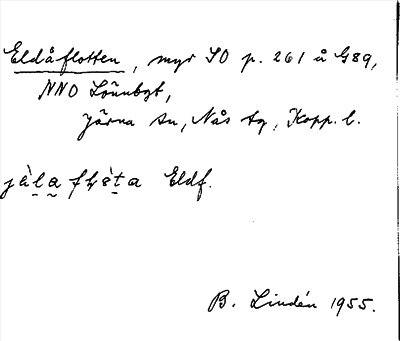 Eldåflotten, myr SO p. 261 å G89,
NNO Lönnbgt,
Järna sn, Nås tg, Kopp. l.
Eldf.
B. Lindén 1955.